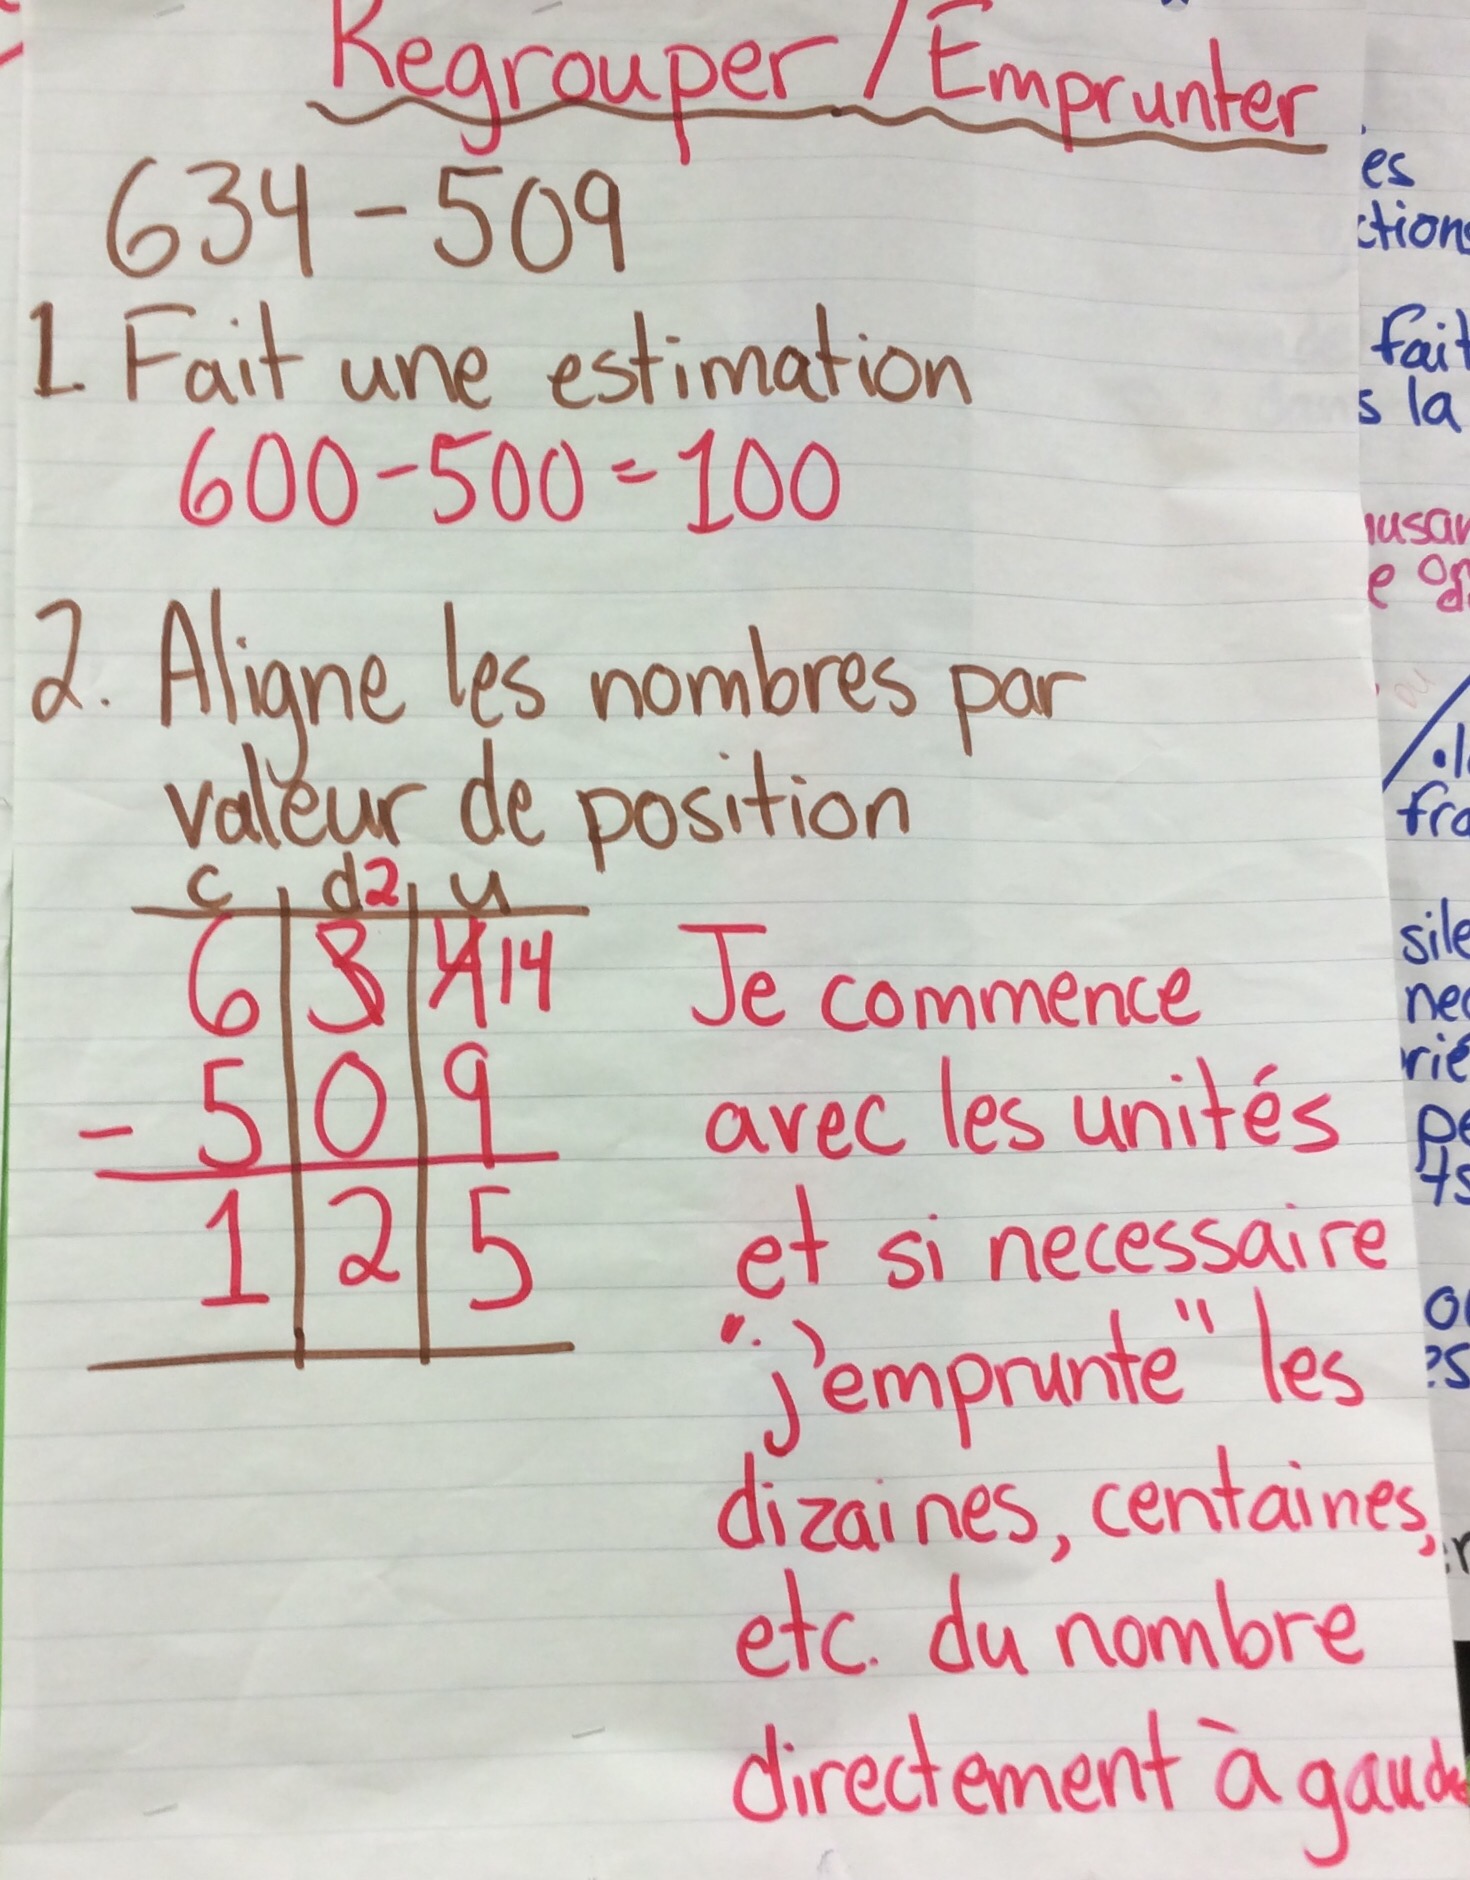 Regrouper / Emprunter
634 - 509
1. Fait une estimation
600 - 500 = 100
2. Aligne les nombres par
valeur de position
c d 2 u
6 3 4 14
- 5 0 9
1 2 5
Je commence
avec les unités
et si necessaire
"j'emprunte" les
dizaines, centaines,
etc. du nombre
directement à
es
fait
s la